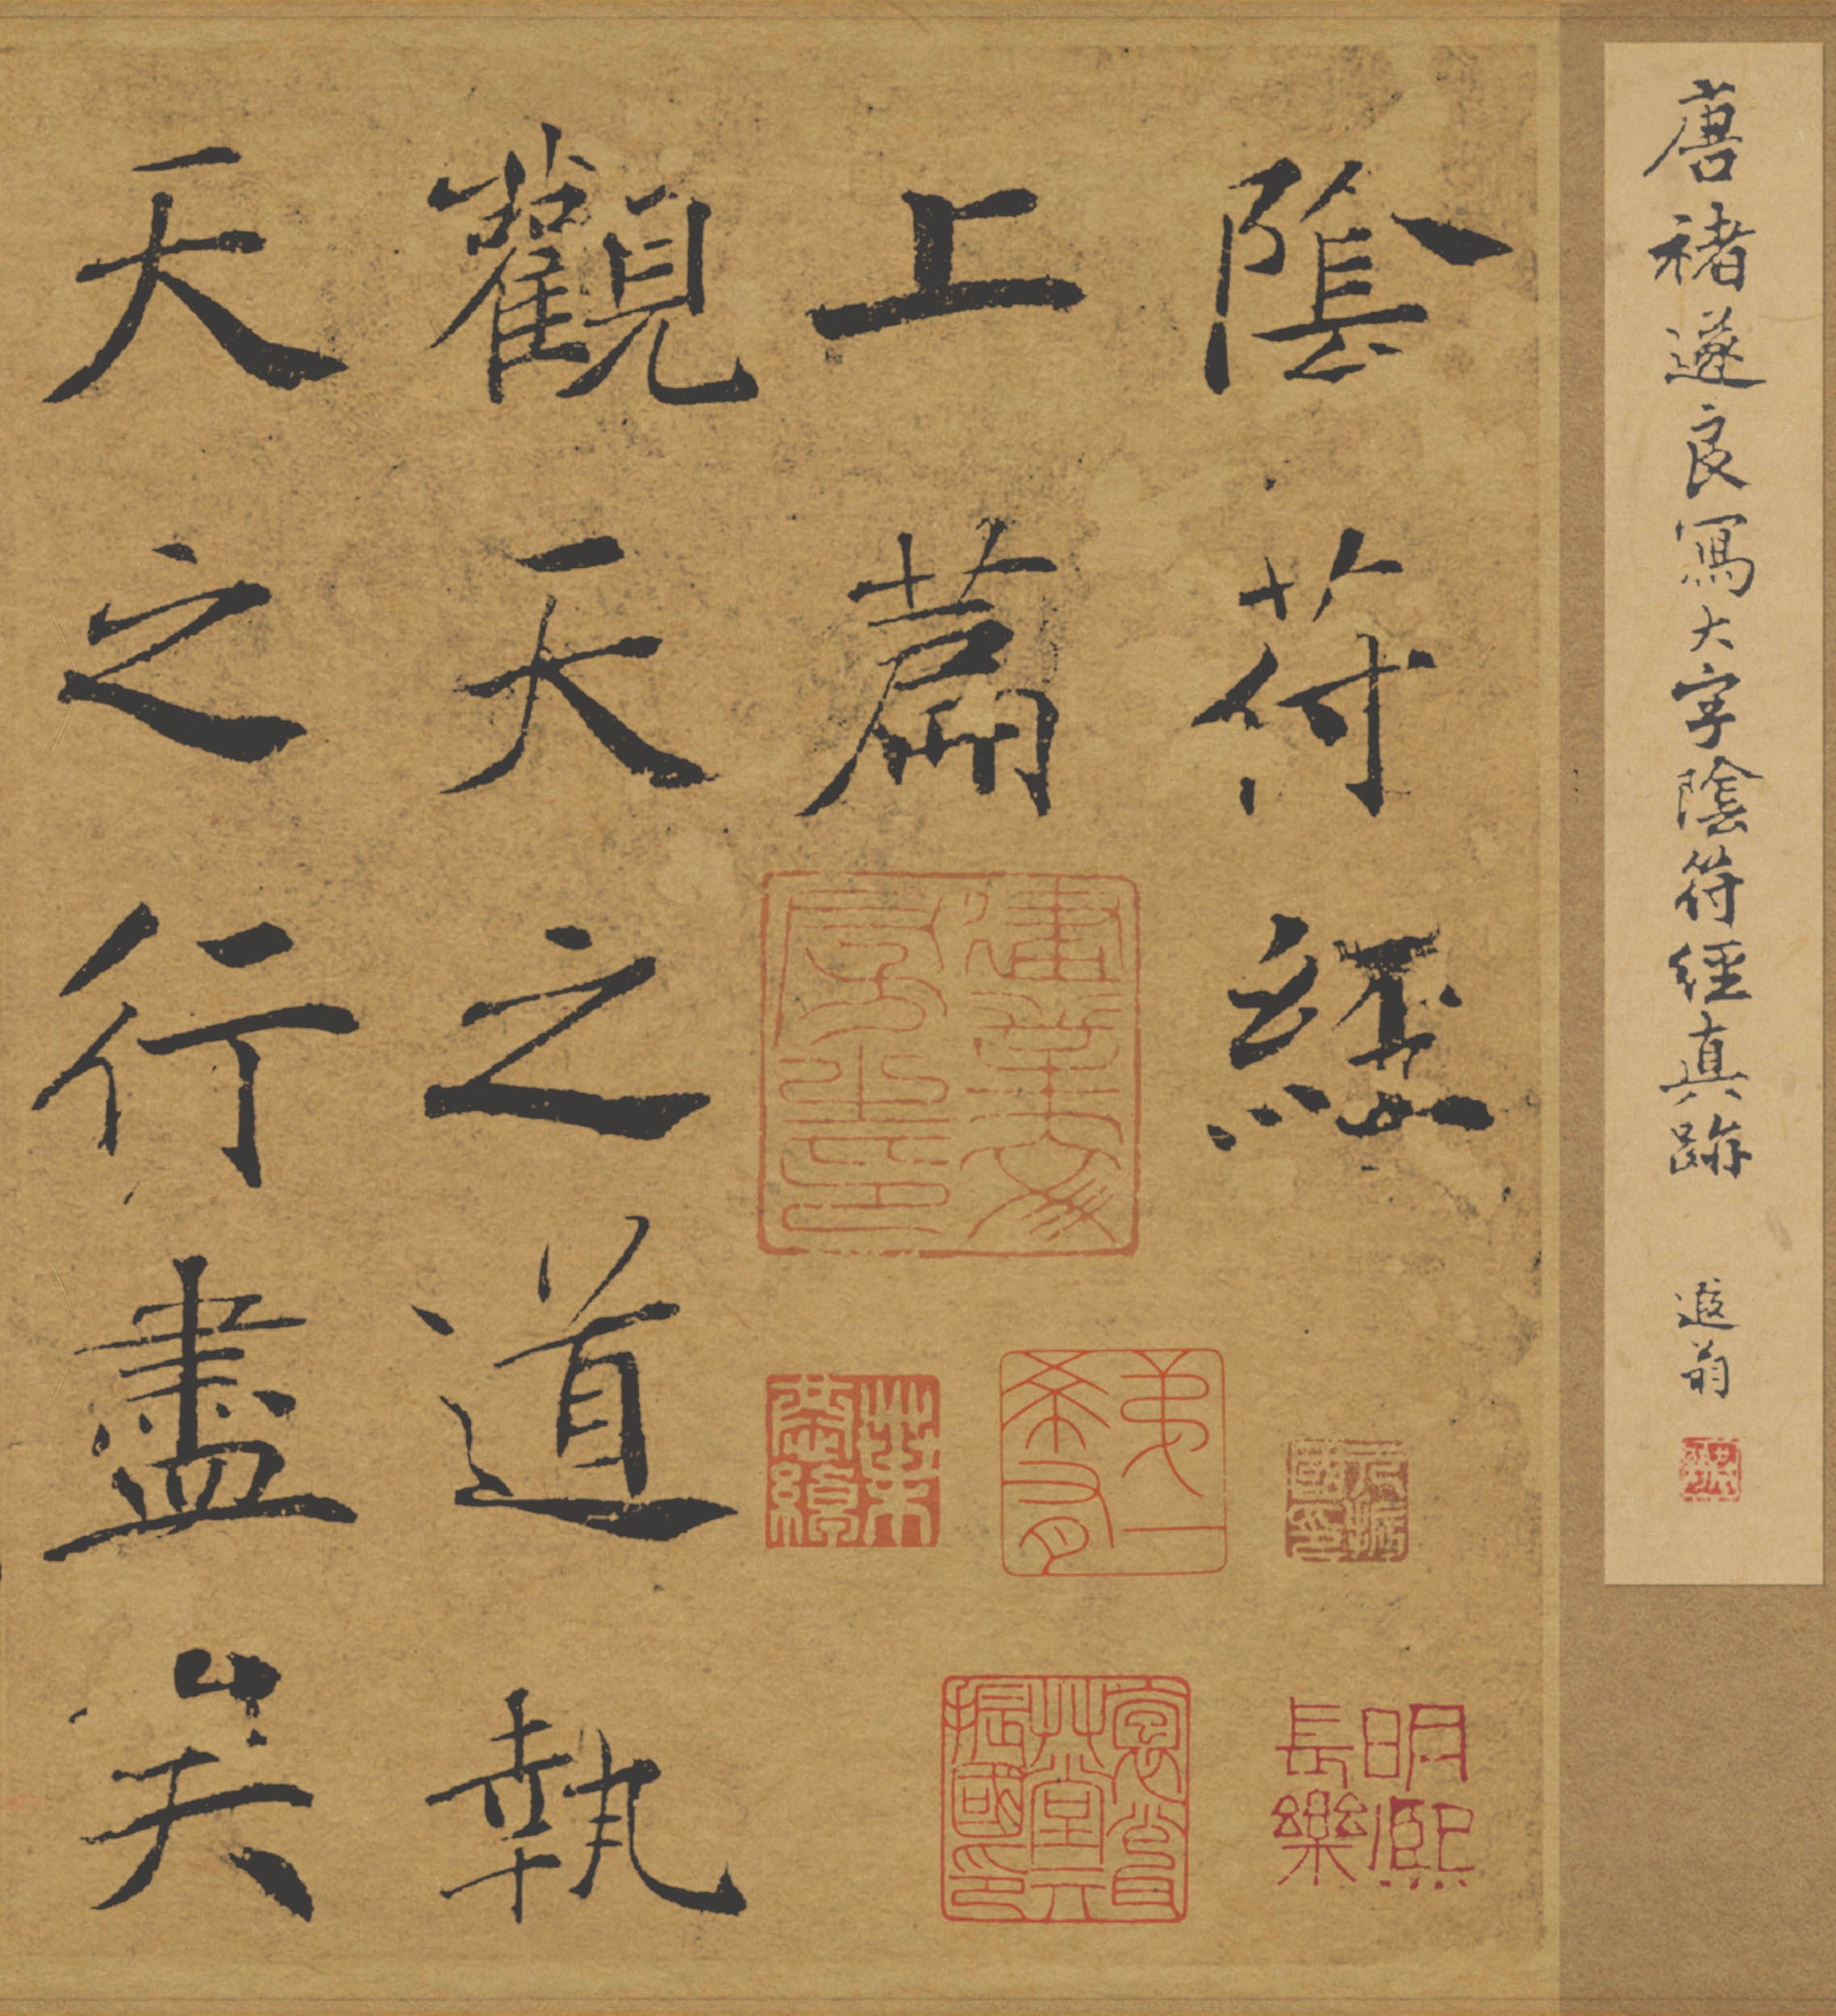 唐褚遂良寫大字陰符經真跡 遐翁
陰符經
上篇
觀天之道執
天之行盡矣
明熙
長樂